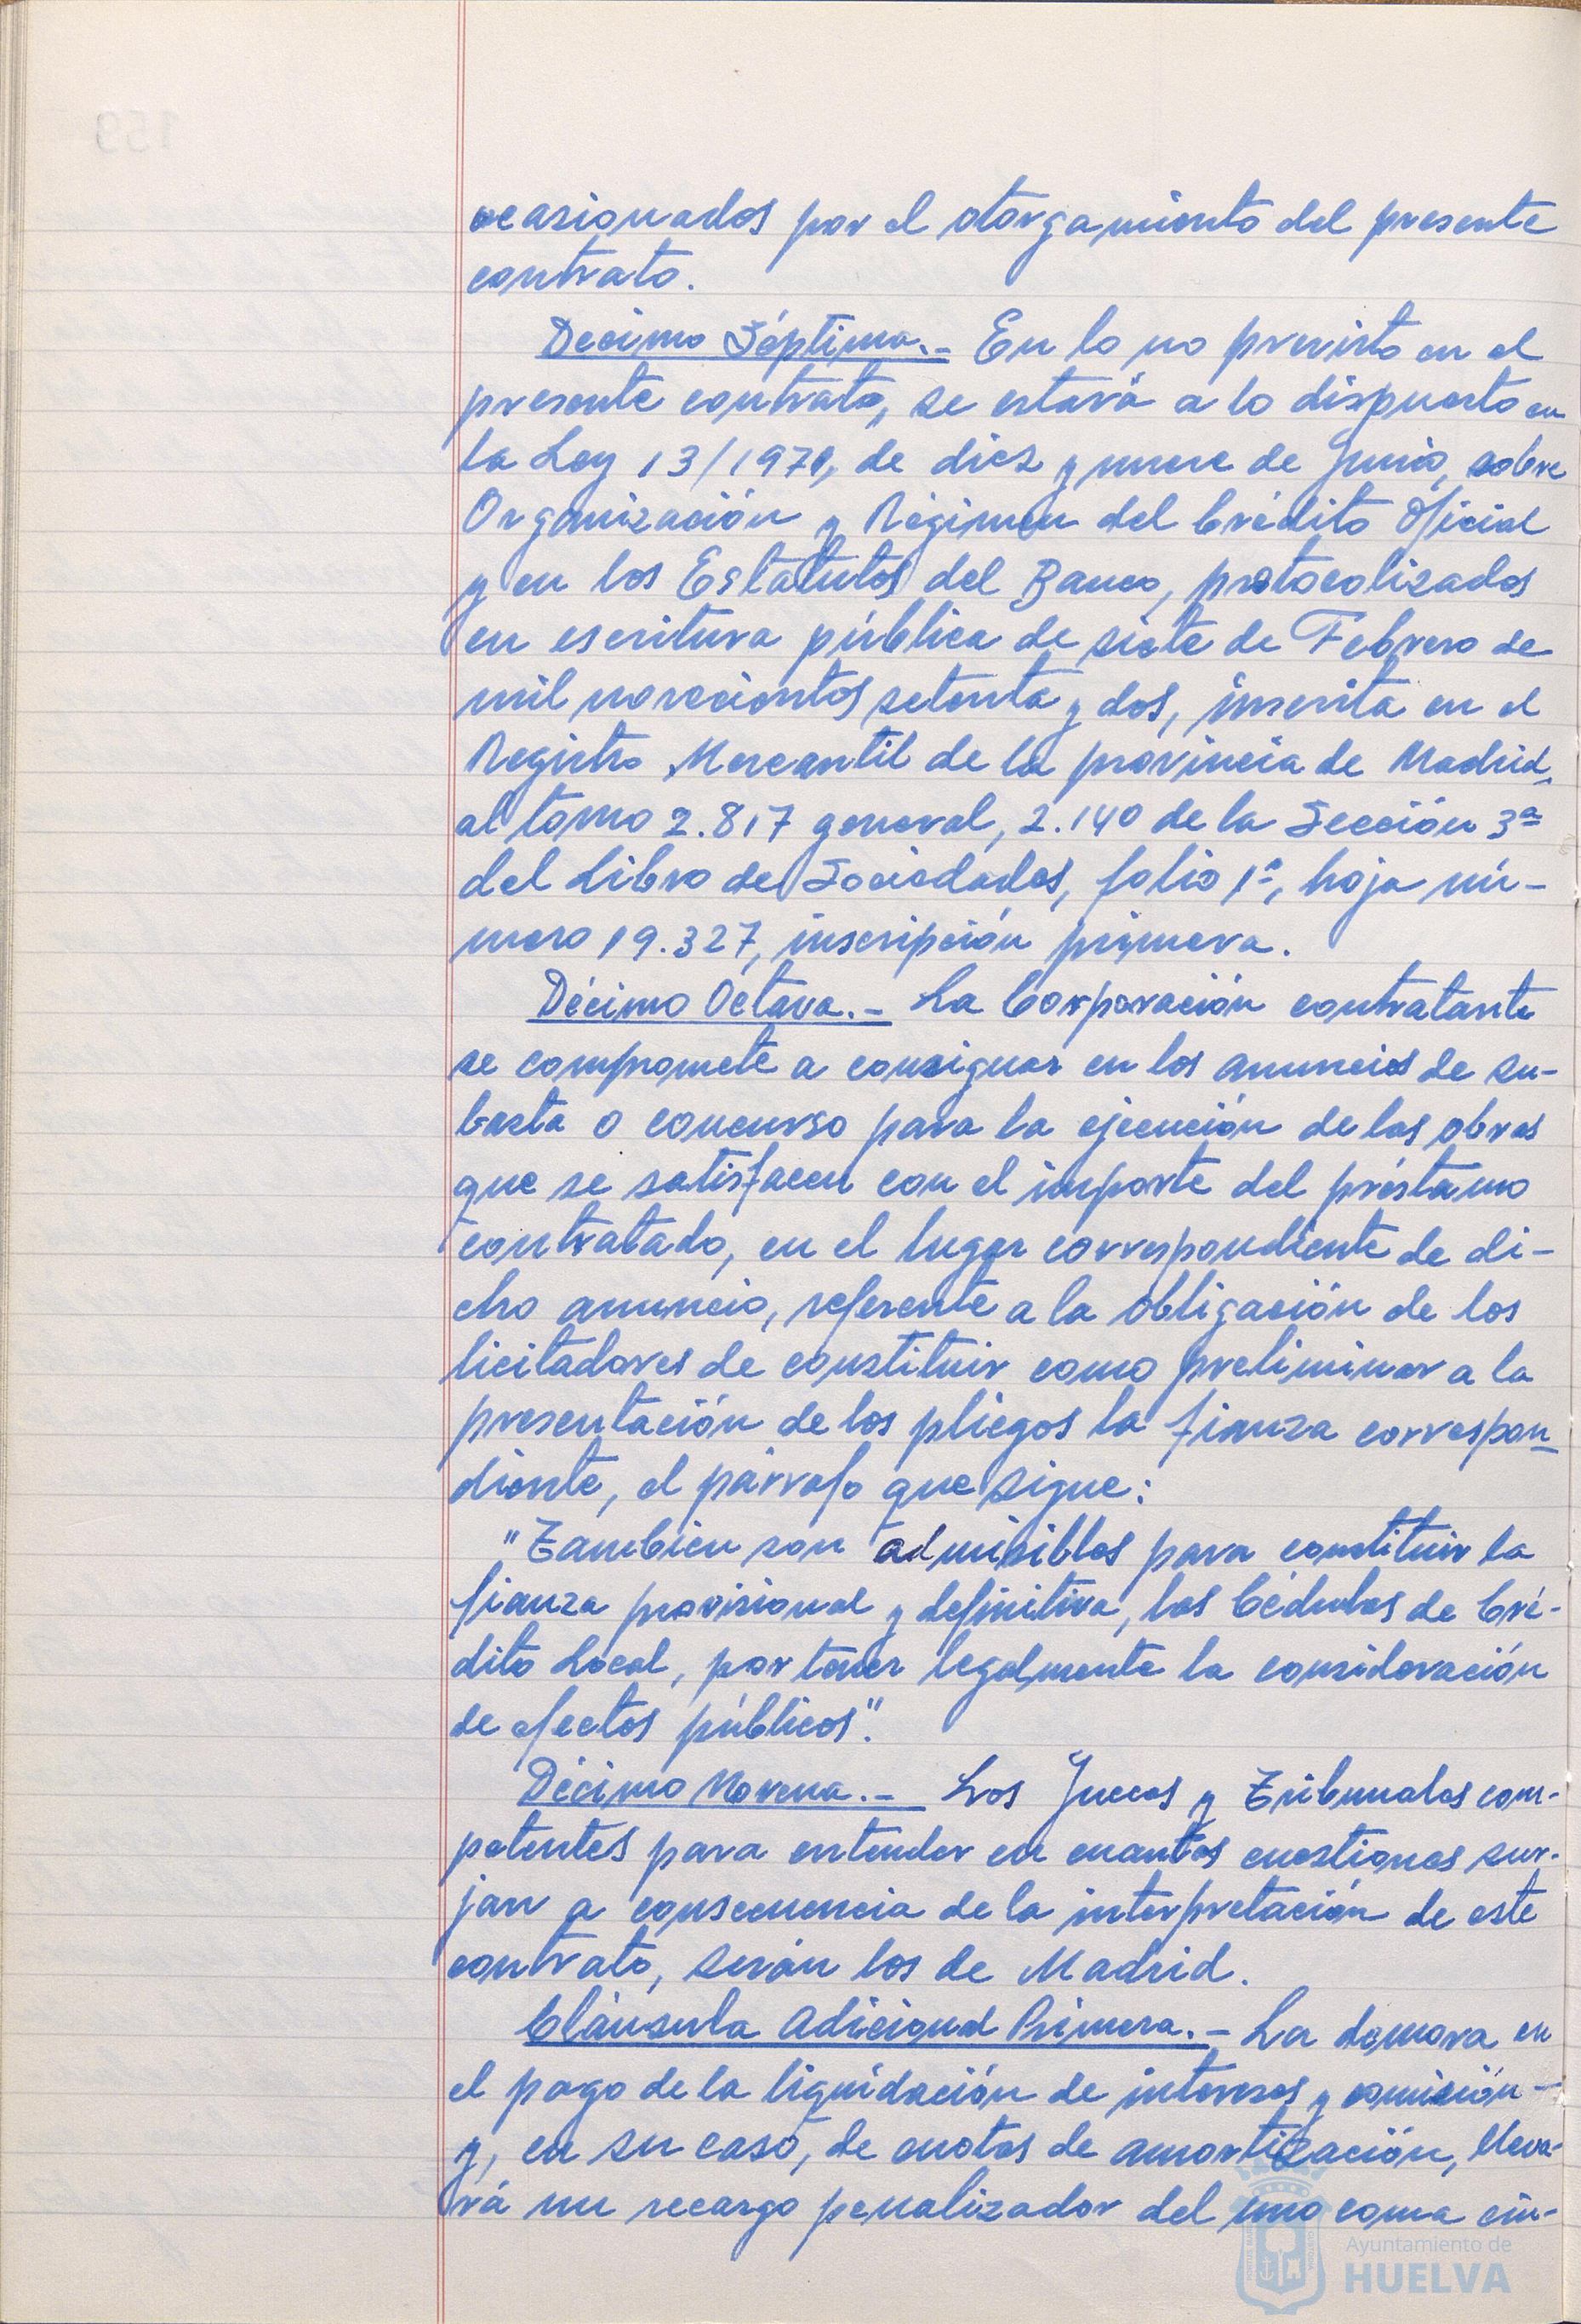 ocasionados por el otorgamiento del presente
contrato.
Decimo Séptima.- En lo no previsto en el
presente contrato, se estará a lo dispuesto en
la Ley 13/1971, de diez y nueve de Junio, sobre
Organización y Régimen del Crédito Oficial
y en los Estatutos del Banco, protocolizados
en escritura pública de siete de Febrero de
mil novecientos setenta y dos, inscrita en el
Registro Mercantil de la provincia de Madrid,
al tomo 2.817 general, 2.140 de la Sección 3ª
del Libro de Sociedades, folio 1º, hoja nú-
mero 19.327, inscripción primera.
Décimo Octava.- La Corporación contratante
se compromete a consignar en los anuncios de su-
basta o concurso para la ejecución de las obras
que se satisfacen con el importe del préstamo
contratado, en el lugar correspondiente de di-
cho anuncio, referente a la obligación de los
licitadores de constituir como preliminar a la
presentación de los pliegos la fianza correspon-
diente, el párrafo que sigue:
"Tambien son admisibles para constituir la
fianza provisional y definitiva, las Cédulas de Cré-
dito Local, por tener legalmente la consideración
de efectos públicos".
Décimo Novena.- Los Jueces y Tribunales com-
petentes para entender en cuantas cuestiones sur-
jan a consecuencia de la interpretación de este
contrato, serán los de Madrid.
Cláusula Adicional Primera.- La demora en
el pago de la liquidación de intereses y comisión
y, en su caso, de cuotas de amortización, lleva-
rá un recargo penalizador del uno coma cin-
Ayuntamiento de
HUELVA
159